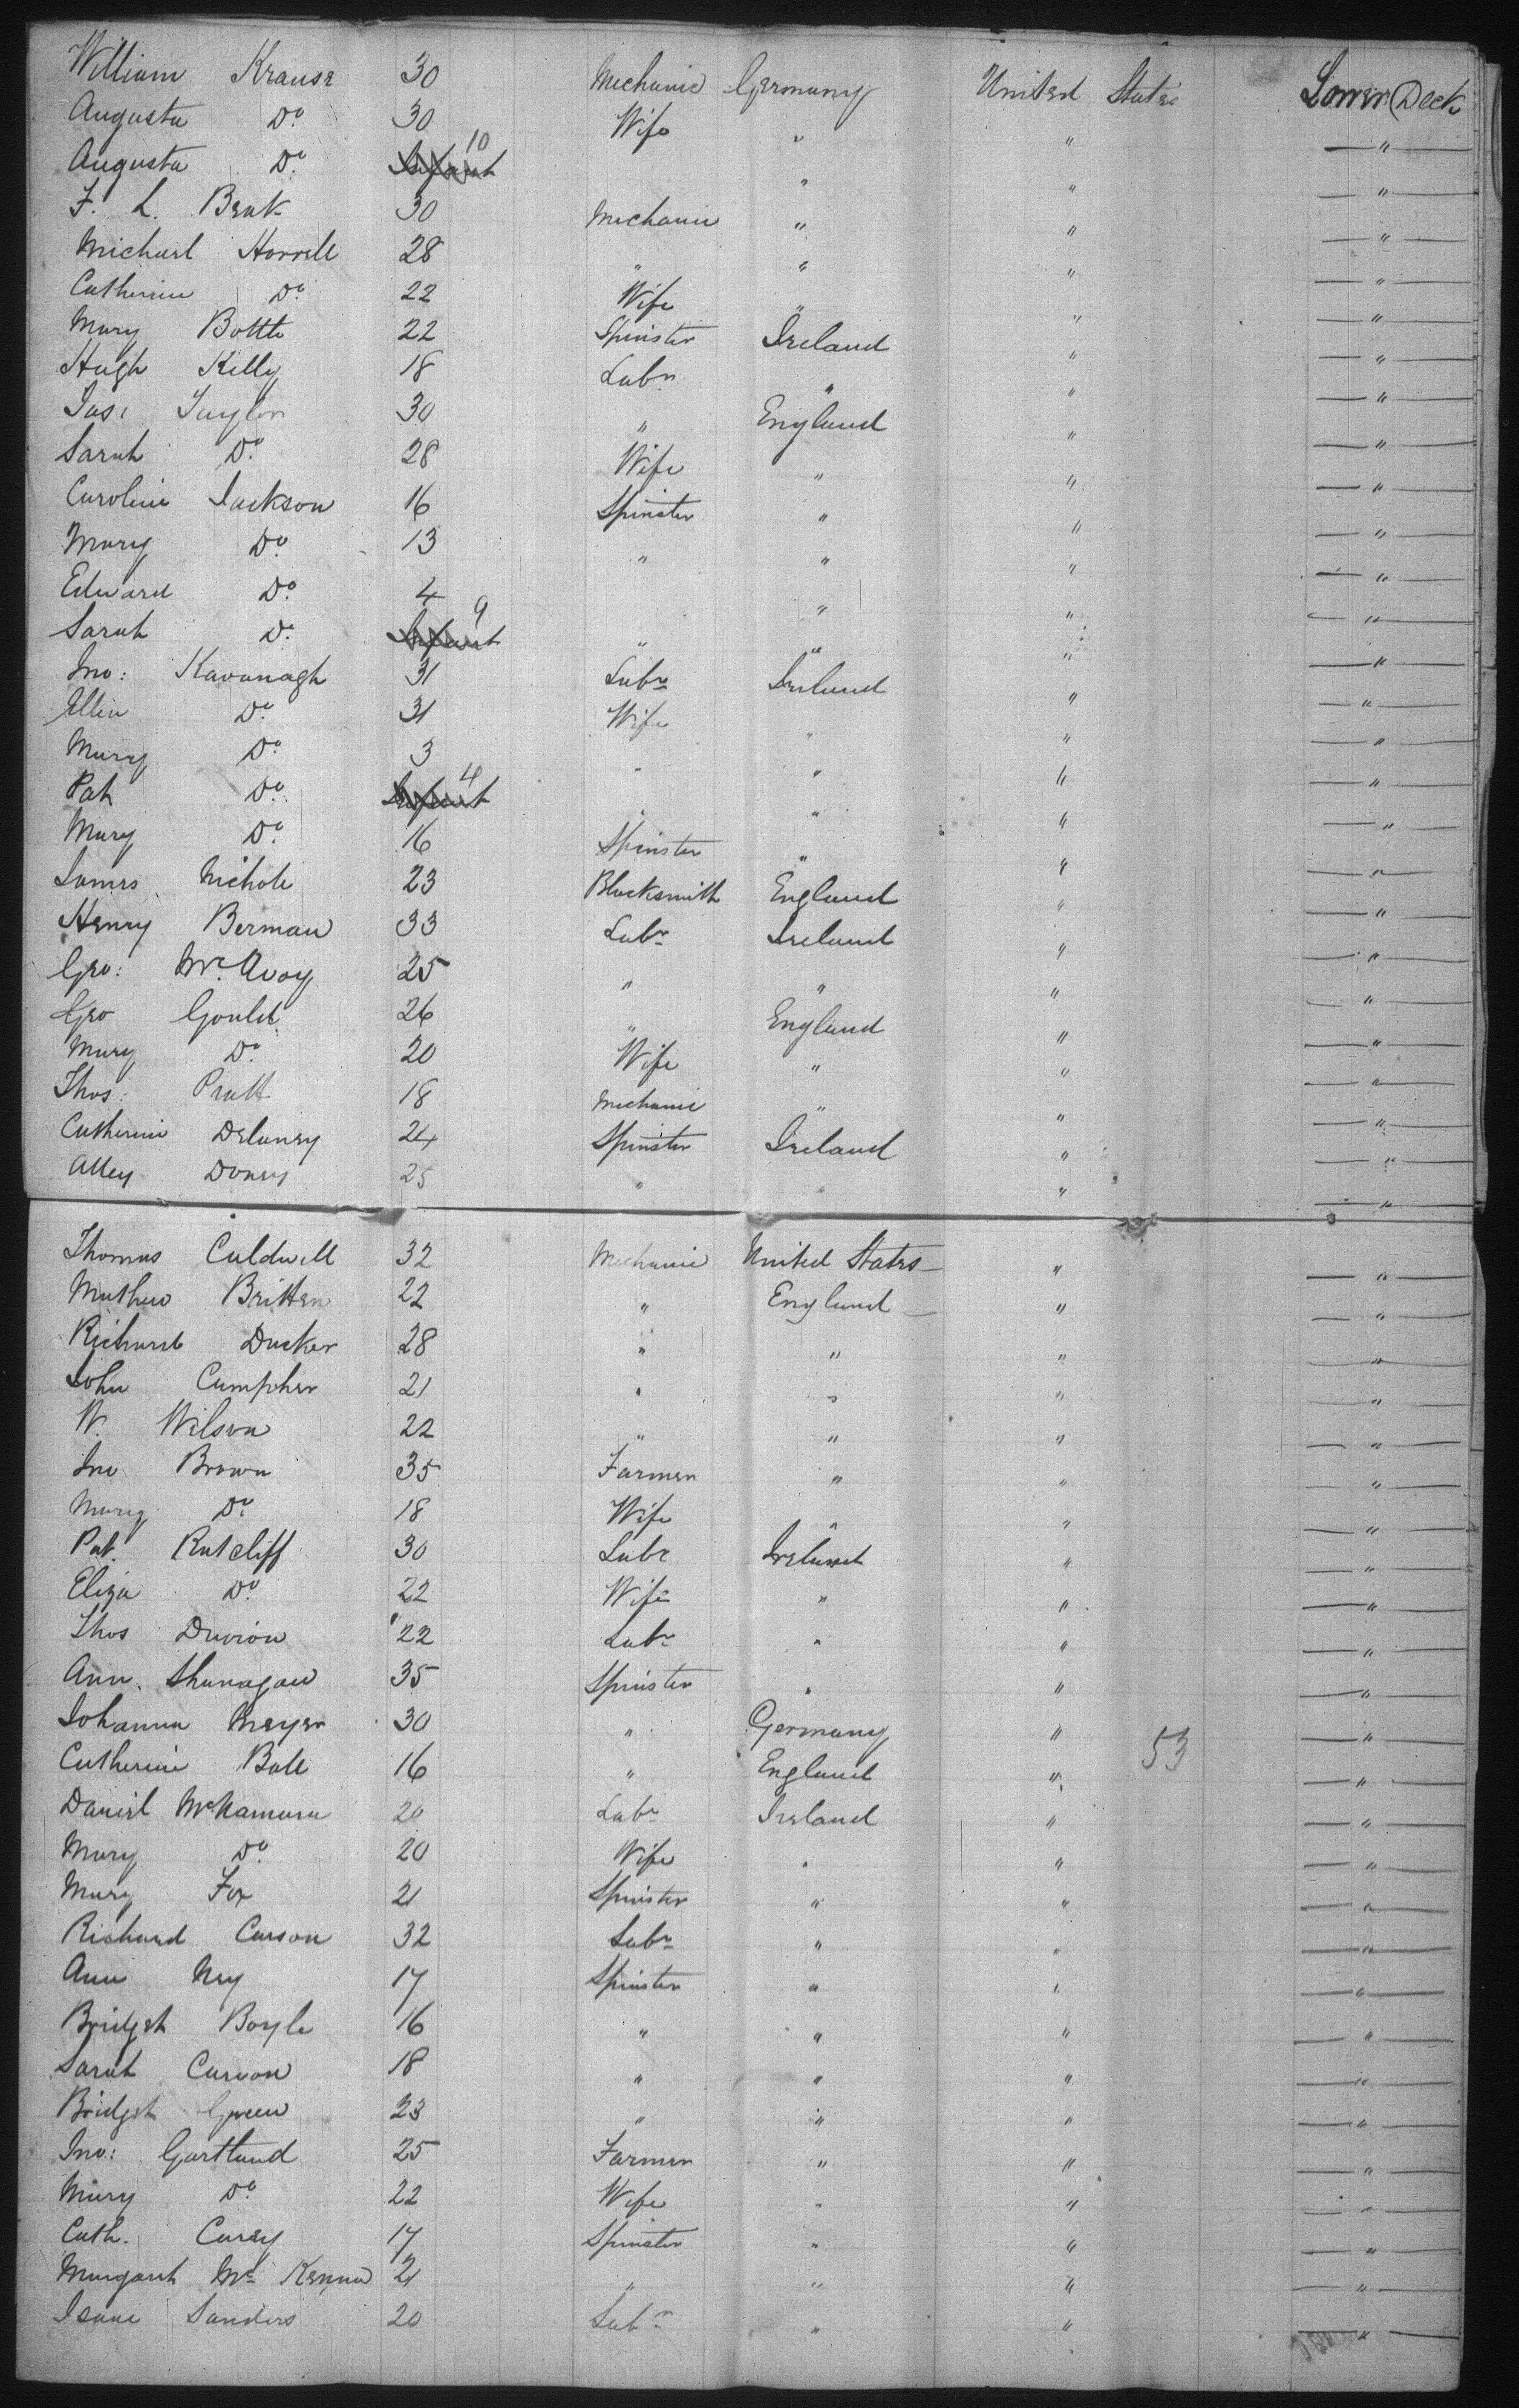 William Krause 30 Mechanic Germany United States Lower Deck
Augusta Do 30 Wife " " — " —
Augusta Do Infant 10 " " — " —
F. L. Benk 30 Mechanic " " — " —
Michael Horrell 28 " " " — " —
Catherine Do 22 Wife " " — " —
Mary Bottle 22 Spinster Ireland " — " —
Hugh Kelly 18 Labr " " — " —
Jas: Taylor 30 " England " — " —
Sarah Do 28 Wife " " — " —
Caroline Jackson 16 Spinster " " — " —
Mary Do 13 " " " — " —
Edward Do 4 " " — " —
Sarah Do Infant 9 " " " — " —
Jno: Kavanagh 31 Labr Ireland " — " —
Ellen Do 31 Wife " " — " —
Mary Do 3 " " " — " —
Pat Do Infant 4 " " " — " —
Mary Do 16 Spinster " " — " —
James Nichole 23 Blacksmith England " — " —
Henry Berman 33 Labr Ireland " — " —
Geo: McAvoy 25 " " " — " —
Geo Gould 26 " England " — " —
Mary Do 20 Wife " " — " —
Thos: Pratt 18 Mechanic " " — " —
Catherine Delaney 24 Spinster Ireland " — " —
Alley Doney 25 " " " — " —
Thomas Caldwell 32 Mechanic United States — " — " —
Mathew Britten 22 " England — " — " —
Richard Ducker 28 " " " — " —
John Campher 21 " " " — " —
W. Wilson 22 " " " — " —
Jno Brown 35 Farmer " " — " —
Mary Do 18 Wife " " — " —
Pat. Ratcliff 30 Labr Ireland " — " —
Eliza Do 22 Wife " " — " —
Thos 22 Labr " " — " —
Ann. Shanagan 35 Spinster " " — " —
Johanna Meyer 30 " Germany " 53 — " —
Catherine Ball 16 " England " — " —
Daniel McNamara 20 Labr Ireland " — " —
Mary Do 20 Wife " " — " —
Mary Fox 21 Spinster " " — " —
Richard Carson 32 Labr " " — " —
Ann Ney 17 Spinster " " — " —
Bridget Boyle 16 " " " — " —
Sarah Carson 18 " " " — " —
Bridget Green 23 " " " — " —
Jno: Gartland 25 Farmer " " — " —
Mary Do 22 Wife " " — " —
Cath. Carey 17 Spinster " " — " —
Margaret McKenna 21 " " " — " —
Isaac Sanders 20 Labr " " — " —